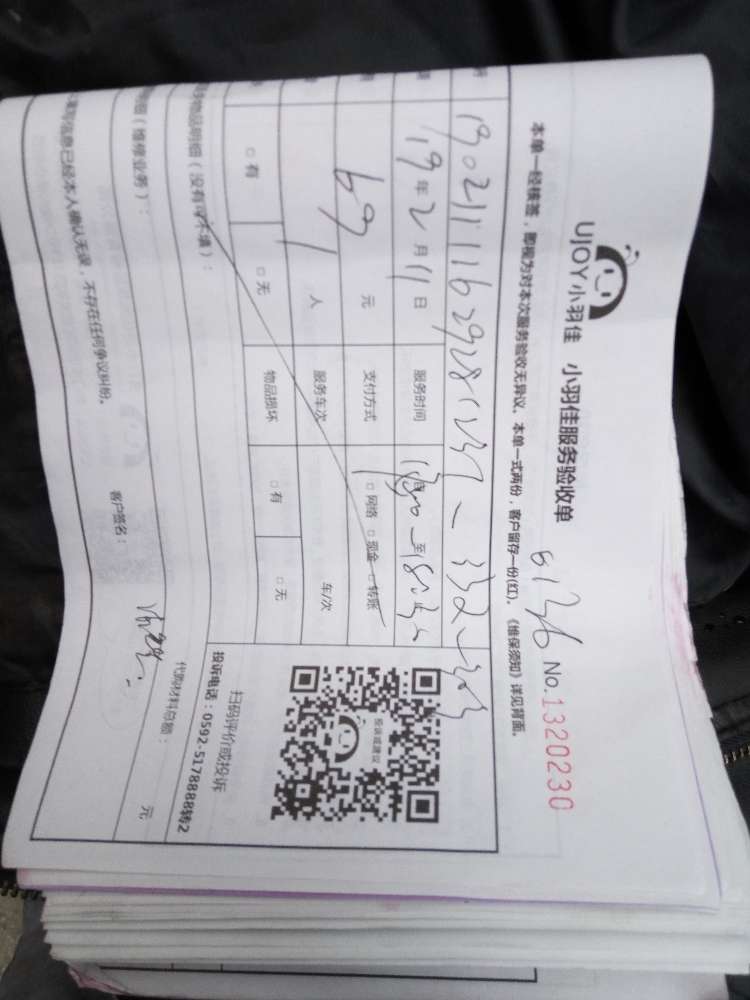 UJOY小羽佳 小羽佳服务验收单 6136 No.1320230
本单一经核签，即视为对本次服务验收无异议。本单一式两份，客户留存一份(红)。《维保须知》详见背面。
19年2月11日 服务时间 至
69元 支付方式 □网络 □现金 □转账
1人 服务车次 车/次
□有 □无 物品损坏 □有 □无
物品明细（没有可不填）：
扫码评价或投诉
投诉电话：0592-5178888转2
投诉或建议
（维修业务）： 代购材料总额： 元
填写信息已经本人确认无误，不存在任何争议纠纷。 客户签名：